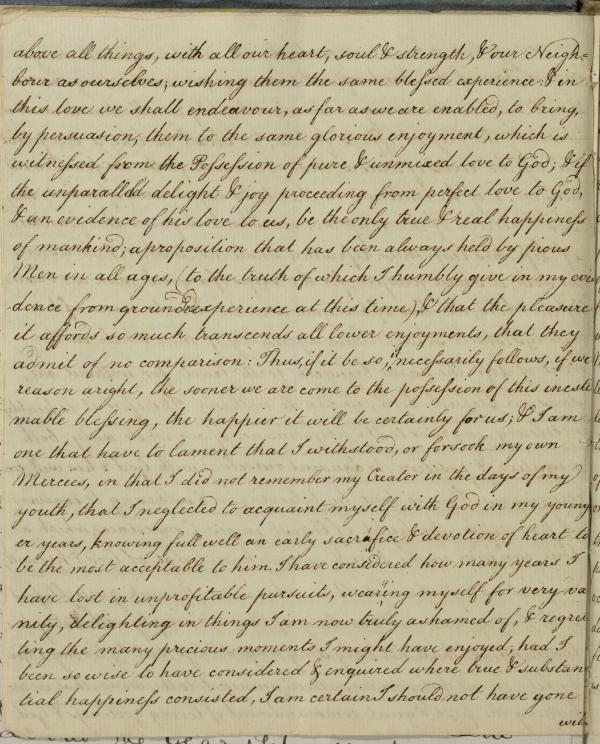 above all things, with all our heart, soul & strength, & our Neigh=
bour as ourselves; wishing them the same blessed experience: & in
this love we shall endeavour, as far as we are enabled, to bring,
by persuasion, them to the same glorious enjoyment, which is
witnessed from the Possession of pure & unmixed love to God; & if
the unparalleld delight & joy proceeding from perfect love to God,
& an evidence of his love to us, be the only true & real happiness
of mankind; a proposition that has been always held by pious
Men in all ages, (to the truth of which I humbly give in my evi
dence from grounded experience at this time), & that the pleasure
it affords so much transcends all lower enjoyments, that they
admit of no comparison: Thus, if it be so, it necessarily follows, if we
reason aright, the sooner we are come to the possession of this inesti
mable blessing, the happier it will be certainly for us; & I am
one that have to lament that I withstood, or forsook my own
Mercies, in that I did not remember my Creator in the days of my
youth, that I neglected to acquaint myself with God in my young
er years, knowing full well an early sacrifice & devotion of heart to
be the most acceptable to him. I have considered how many years I
have lost in unprofitable pursuits, wearing myself for very va
nity, delighting in things I am now truly ashamed of, & regret
ting the many precious moments I might have enjoyed; had I
been so wise to have considered & enquired where true & substan
tial happiness consisted, I am certain I should not have gone